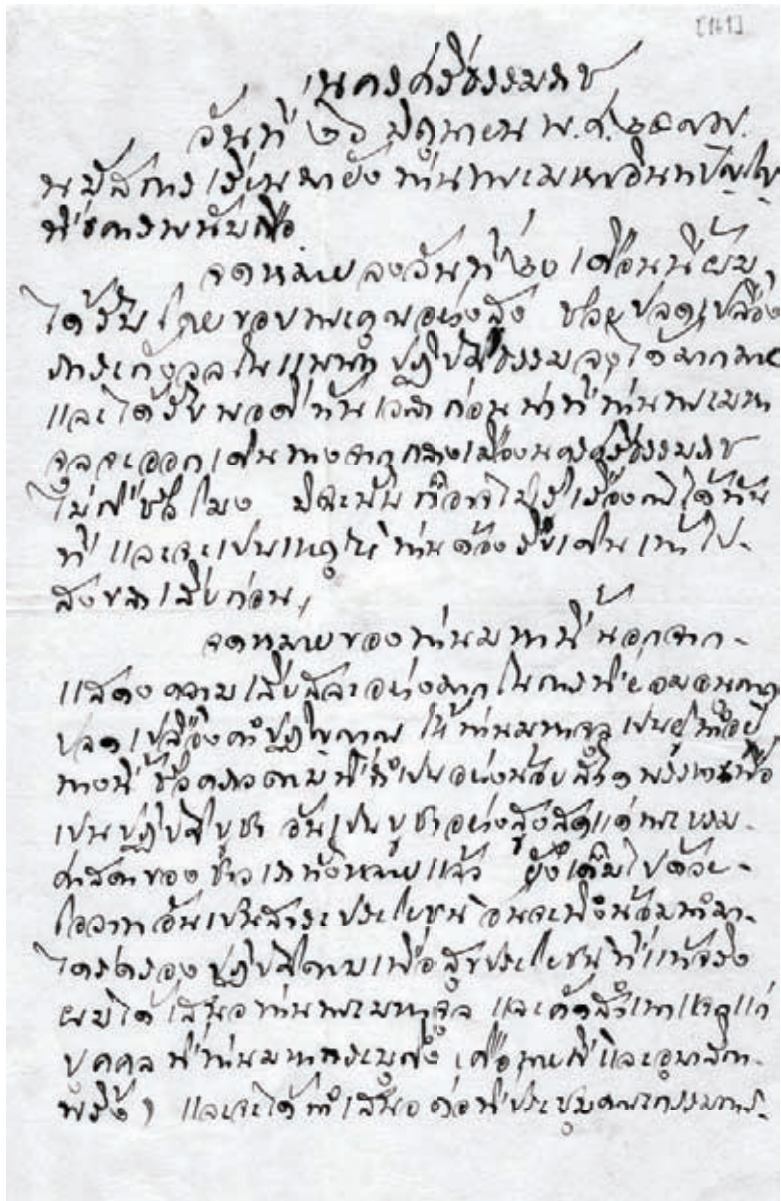 [161]
นครศรีธรรมราช
วันที่ ๒๖ มิถุนายน พ.ศ.
นมัสการ เรียนมายัง ท่านพระมหาอินทปัญโญ
ที่เคารพนับถือ
จดหมายลงวันที่ เดือนนี้ผม
ได้รับโดยขอบพระคุณอย่างสูง ช่วยปลดเปลื้อง
ภาระกังวลในแผนกปฏิบัติธรรมลงได้มากมาย
และได้รับพอดีทันเวลา ก่อนหน้าที่ท่านพระมหา
จุลจะออกเดินทางจากกลางเมืองนครศรีธรรมราช
ไม่กี่ชั่วโมง มิฉะนั้นก็อาจไม่รู้เรื่องได้ทัน
ที และจะเป็นเหตุให้ท่านต้องรีบเดินเท้าไป-
สงขลาเสียก่อน,
จดหมายของท่านมหานี้ นอกจาก-
แสดงความเสียสละอย่างมากในการที่ยอม
ปลดเปลื้องคำปฏิญาณ ให้ท่านมหาจุลเป็นผู้
ทางนี้ ชั่วคราวตามที่จำเป็นอย่างน้อยสัก พรรษาเพื่อ
เป็นปฏิบัติบูชา อันเป็นบูชาอย่างสูงสุดแด่พระบรม-
ศาสดาของชาวเราทั้งหลายแล้ว ยังเต็มไปด้วย-
โอวาท อันเป็นสาระประโยชน์ อันจะพึงน้อมนำมา-
ไตร่ตรอง ปฏิบัติตามเพื่อสุขประโยชน์ที่แท้จริง
ผมได้เสนอท่านพระมหาจุล และคัดสำเนาแจกแก่
บุคคล ที่ท่านมหาระบุถึง เพื่อ และอุบาสิกา-
และจะได้นำเสนอต่อที่ประชุมคณะกรรมการ-